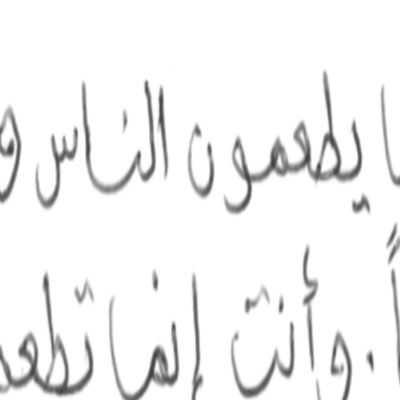 يطعمون الناس
. وأنت إنما تطعم